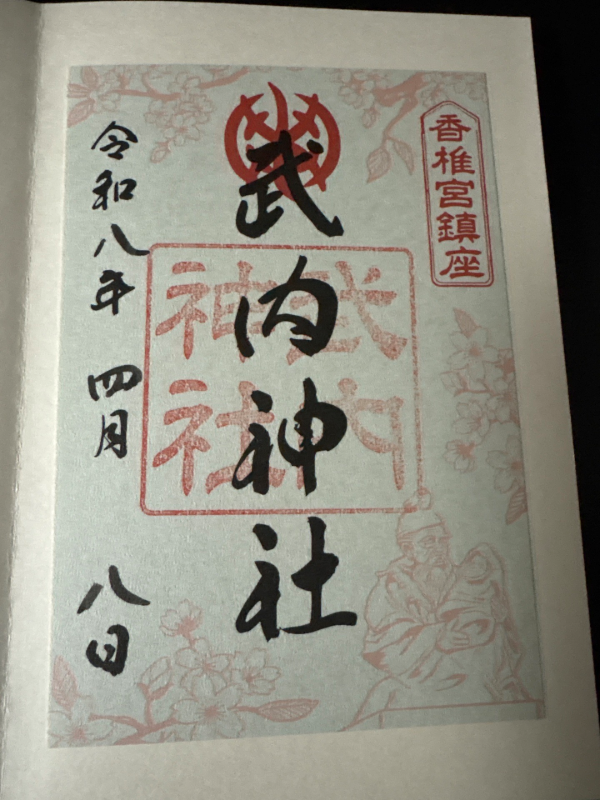 香椎宮鎮座
武内神社
武内
神社
令和八年 四月 八日